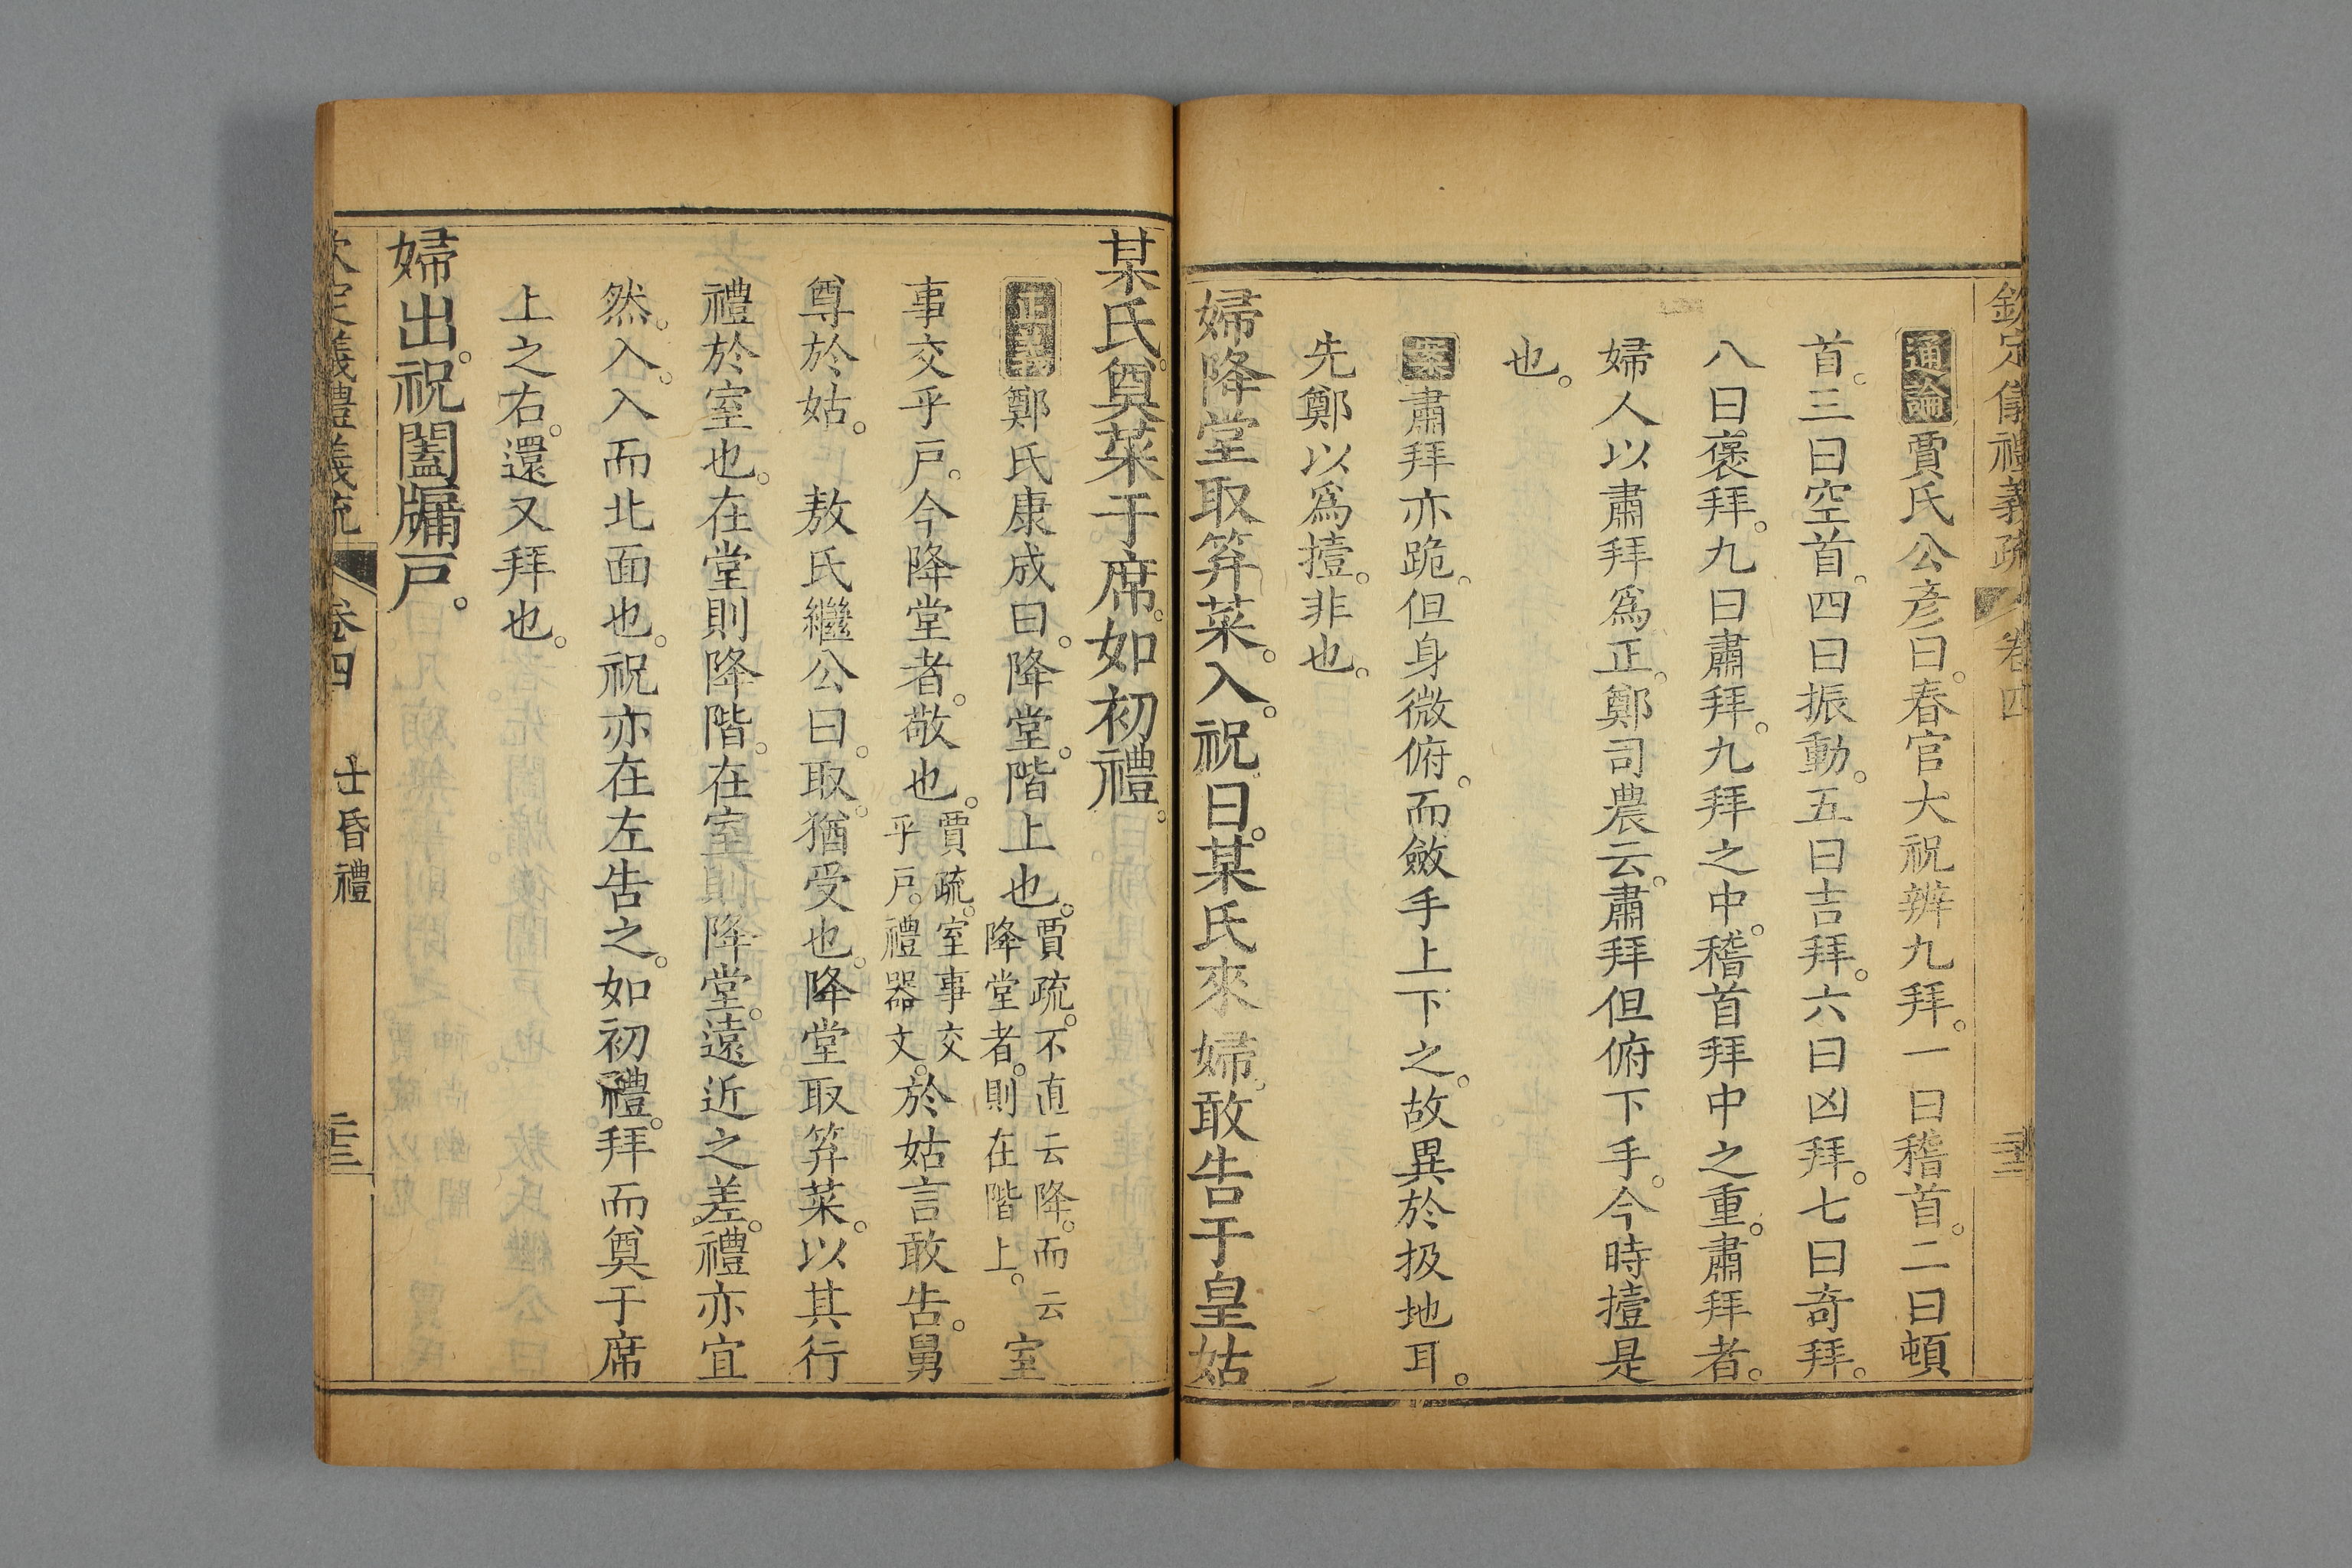 欽定儀禮義疏 卷四
通論賈氏公彦曰。春官大祝辨九拜。一曰稽首。二曰頓
首。三曰空首。四曰振動。五曰吉拜。六曰凶拜。七曰奇拜。
八曰褒拜。九曰肅拜。九拜之中。稽首拜中之重。肅拜者。
婦人以肅拜爲正。鄭司農云。肅拜但俯下手。今時撎是
也。
案肅拜亦跪。但身微俯。而斂手上下之。故異於扱地耳。
先鄭以爲撎。非也。
婦降堂取笲菜。入。祝曰。某氏來婦。敢告于皇姑
某氏。奠菜于席。如初禮。
正義鄭氏康成曰。降堂。階上也。賈疏。不直云降。而云降堂者。則在階上。室
事交乎戸。今降堂者。敬也。賈疏。室事交乎戸。禮器文。於姑言敢告。舅
尊於姑。 敖氏繼公曰。取。猶受也。降堂取笲菜。以其行
禮於室也。在堂則降階。在室則降堂。遠近之差。禮亦宜
然。入。入而北面也。祝亦在左告之。如初禮。拜而奠于席
上之右。還又拜也。
婦出。祝闔牖戸。
欽定儀禮義疏 卷四 士昏禮 二十三